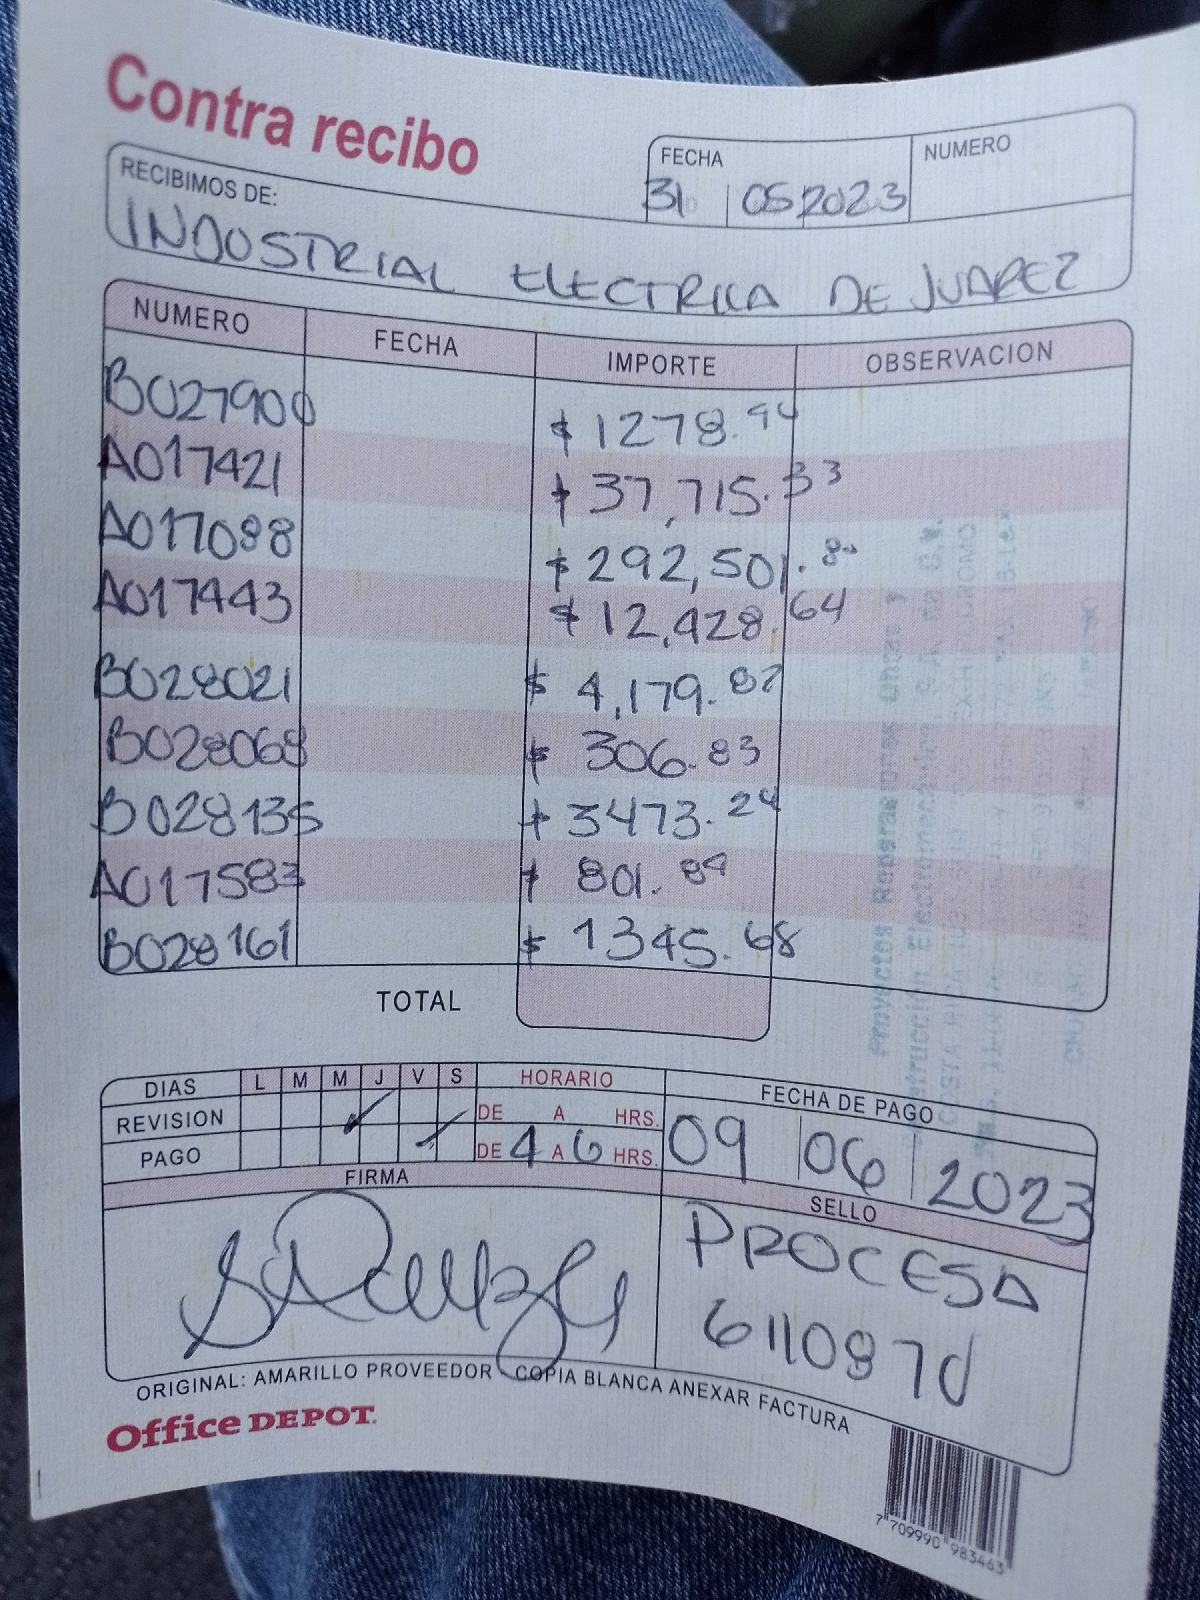 Contra recibo
FECHA
NUMERO
31 05 2023
RECIBIMOS DE:
INDUSTRIAL ELECTRICA DE JUAREZ
NUMERO FECHA IMPORTE OBSERVACION
B027900 $ 1278.94
A017421 $ 37,715.33
A017088 $ 292,501.80
A017443 $ 12,428.64
B028021 $ 4,179.82
B028068 $ 306.83
B028135 $ 3473.24
A017583 $ 801.89
B028161 $ 1345.68
TOTAL
DIAS L M M J V S HORARIO FECHA DE PAGO
REVISION DE A HRS.
PAGO DE 4 A 6 HRS. 09 06 2023
FIRMA SELLO
PROCESA
6110870
ORIGINAL: AMARILLO PROVEEDOR COPIA BLANCA ANEXAR FACTURA
Office DEPOT.
7 709990 983463